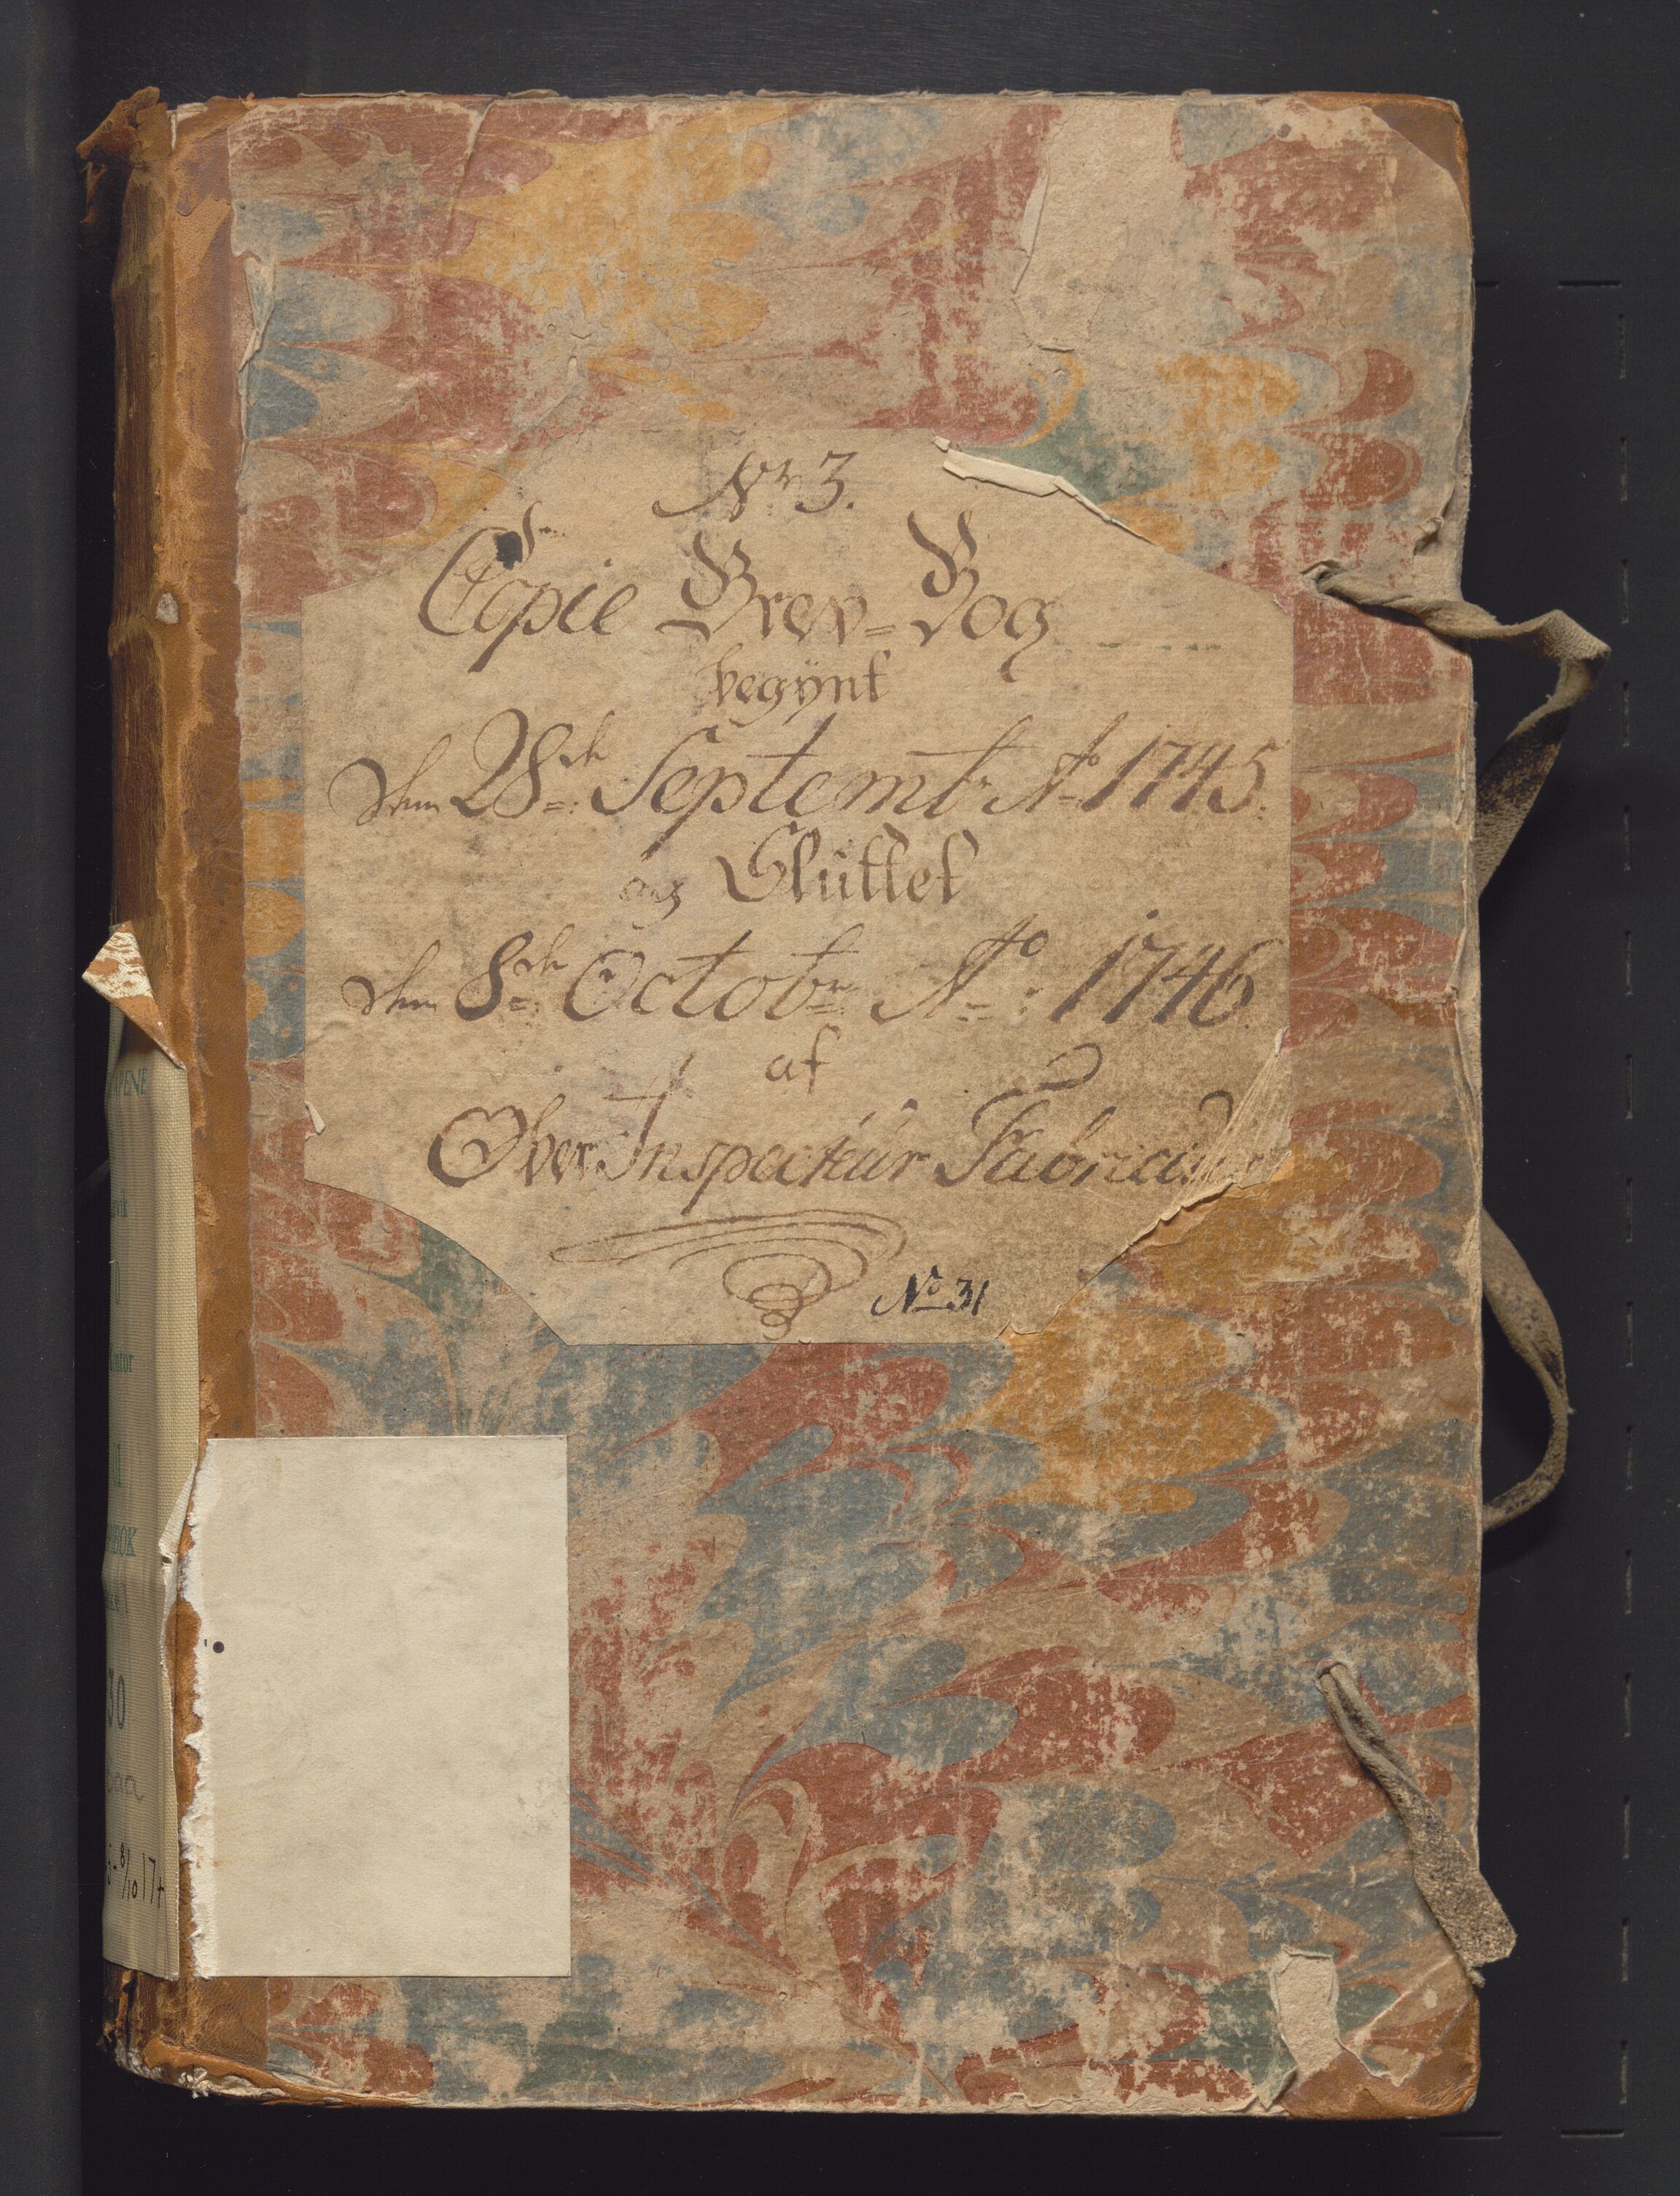 Nr. 3.
Copie Brev=Bog
begÿnt
den 28de Septembr Ao 1745.
og Sluttet
den 8de Octobr Ao: 1746.
af
Ober Inspecteur Fabricius
No 31
30
8/10 17